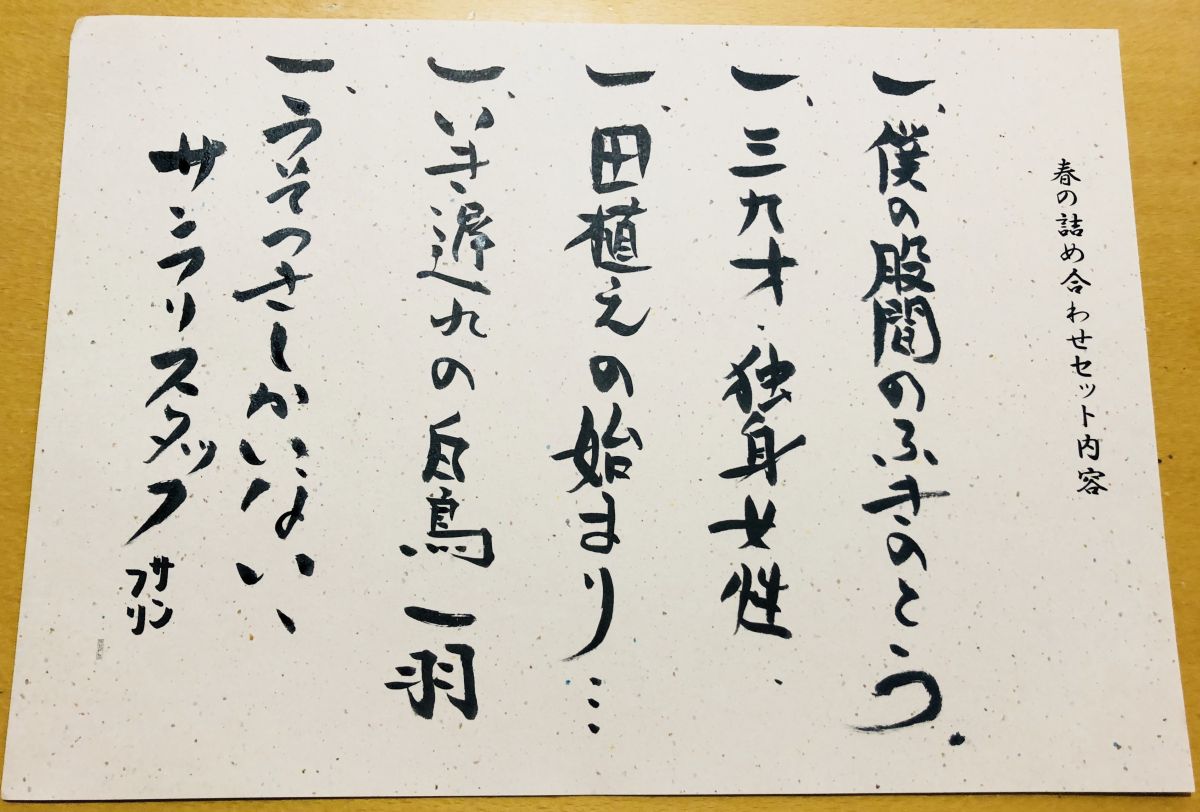 春の詰め合わせセット内容
一、僕の股間のふきのとう.
一、三九才.独身女性.
一、田植えの始まり…
一、いき遅れの白鳥 一羽
一、うそつきしかいない、
サンフリスタッフ
サン
フリ